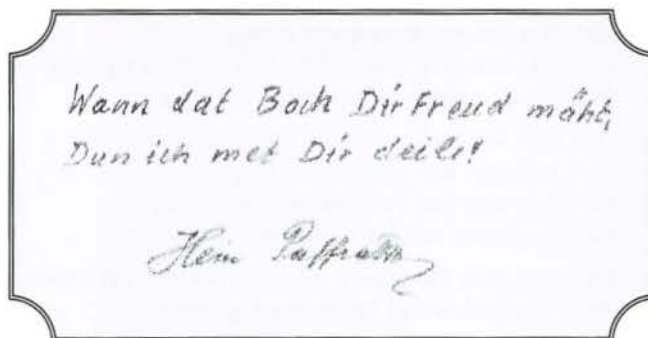 Wann dat Boch Dir Freud mäht,
Dun ich met Dir deile!
Hein Paffrath